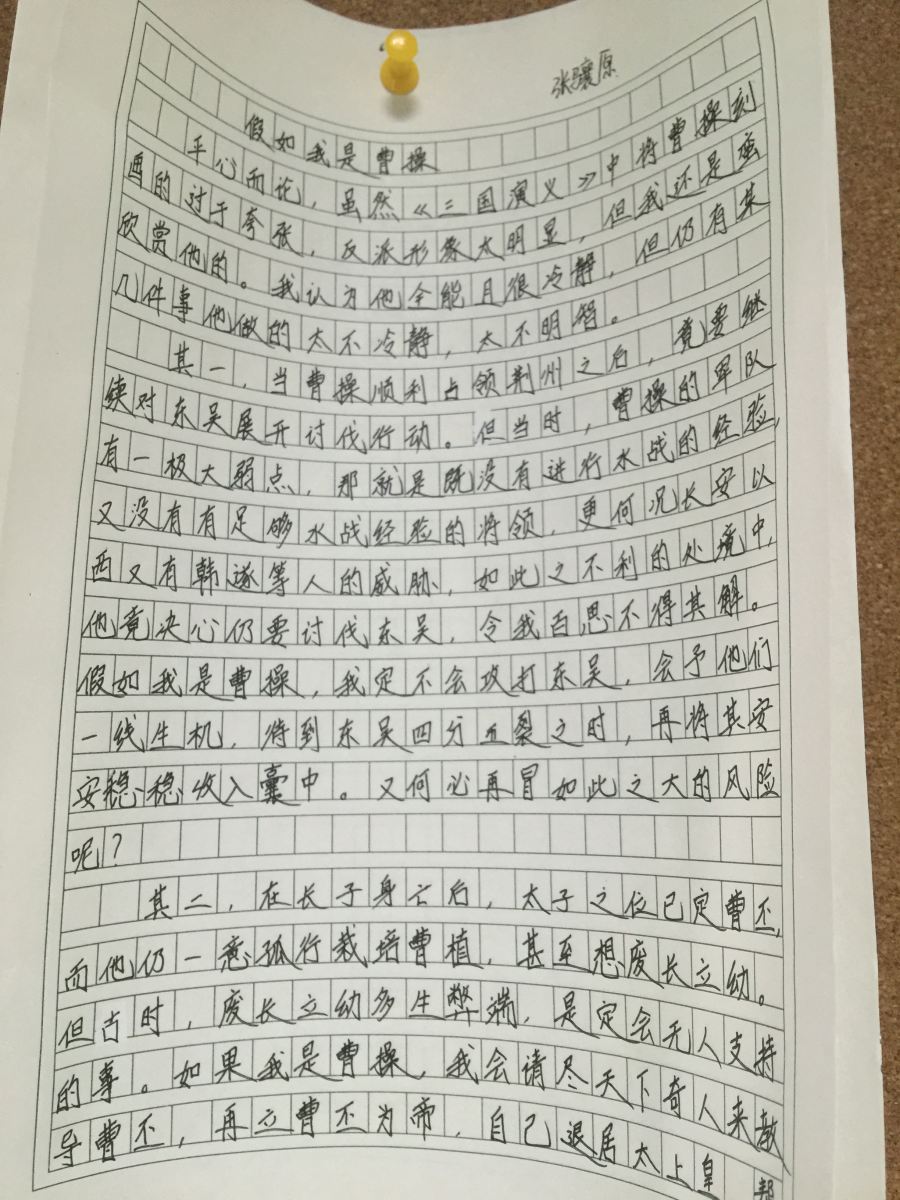 张骧原
假如我是曹操
平心而论，虽然《三国演义》中将曹操刻
画的过于夸张，反派形象太明显，但我还是蛮
欣赏他的。我认为他全能且很冷静，但仍有某
几件事他做的太不冷静，太不明智。
其一，当曹操顺利占领荆州之后，竟要继
续对东吴展开讨伐行动。但当时，曹操的军队
有一极大弱点，那就是既没有进行水战的经验，
又没有有足够水战经验的将领，更何况长安以
西又有韩遂等人的威胁，如此之不利的处境中，
他竟决心仍要讨伐东吴，令我百思不得其解。
假如我是曹操，我定不会攻打东吴，会予他们
一线生机，待到东吴四分五裂之时，再将其安
安稳稳收入囊中。又何必再冒如此之大的风险
呢？
其二，在长子身亡后，太子之位已定曹丕，
而他仍一意孤行栽培曹植，甚至想废长立幼。
但古时，废长立幼多生弊端，是定会无人支持
的事。如果我是曹操，我会请尽天下奇人来教
导曹丕，再立曹丕为帝，自己退居太上皇，帮